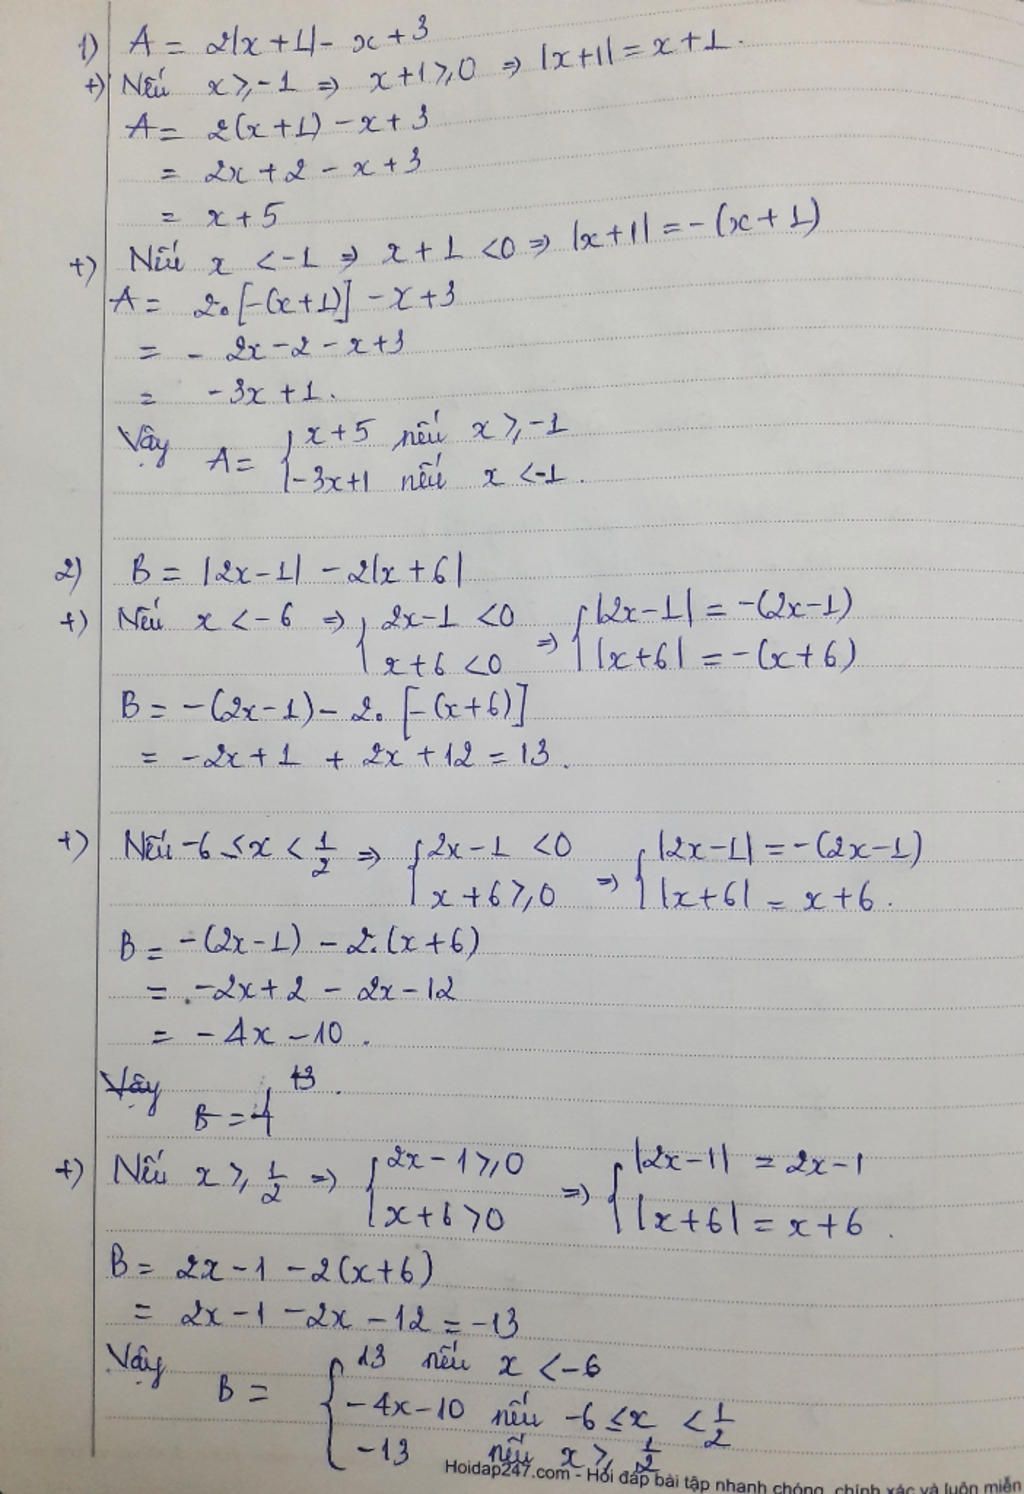 1) A = 2|x+1| - x+3
+) Nếu x ⩾ -1 ⇒ x+1 ⩾ 0 ⇒ |x+1| = x+1.
A = 2(x+1) - x+3
= 2x+2 - x+3
= x+5
+) Nếu x < -1 ⇒ x+1 < 0 ⇒ |x+1| = -(x+1)
A = 2.[-(x+1)] - x+3
= - 2x - 2 - x+3
= -3x+1.
Vậy A = { x+5 nếu x ⩾ -1
-3x+1 nếu x < -1.
2) B = |2x-1| - 2|x+6|
+) Nếu x < -6 ⇒ { 2x-1 < 0 ⇒ { |2x-1| = -(2x-1)
x+6 < 0 |x+6| = -(x+6)
B = -(2x-1) - 2.[-(x+6)]
= -2x+1 + 2x+12 = 13.
+) Nếu -6 ≤ x < 1/2 ⇒ { 2x-1 < 0 ⇒ { |2x-1| = -(2x-1)
x+6 ⩾ 0 |x+6| = x+6.
B = -(2x-1) - 2.(x+6)
= -2x+2 - 2x-12
= -4x-10.
Vậy 13.
B = {
+) Nếu x ⩾ 1/2 ⇒ { 2x-1 ⩾ 0 ⇒ { |2x-1| = 2x-1
x+6 > 0 |x+6| = x+6.
B = 2x-1 - 2(x+6)
= 2x-1 - 2x - 12 = -13
Vậy B = { 13 nếu x < -6
-4x-10 nếu -6 ≤ x < 1/2
-13 nếu x ⩾ 1/2
Hoidap247.com - Hỏi đáp bài tập nhanh chóng, chính xác và luôn miễn